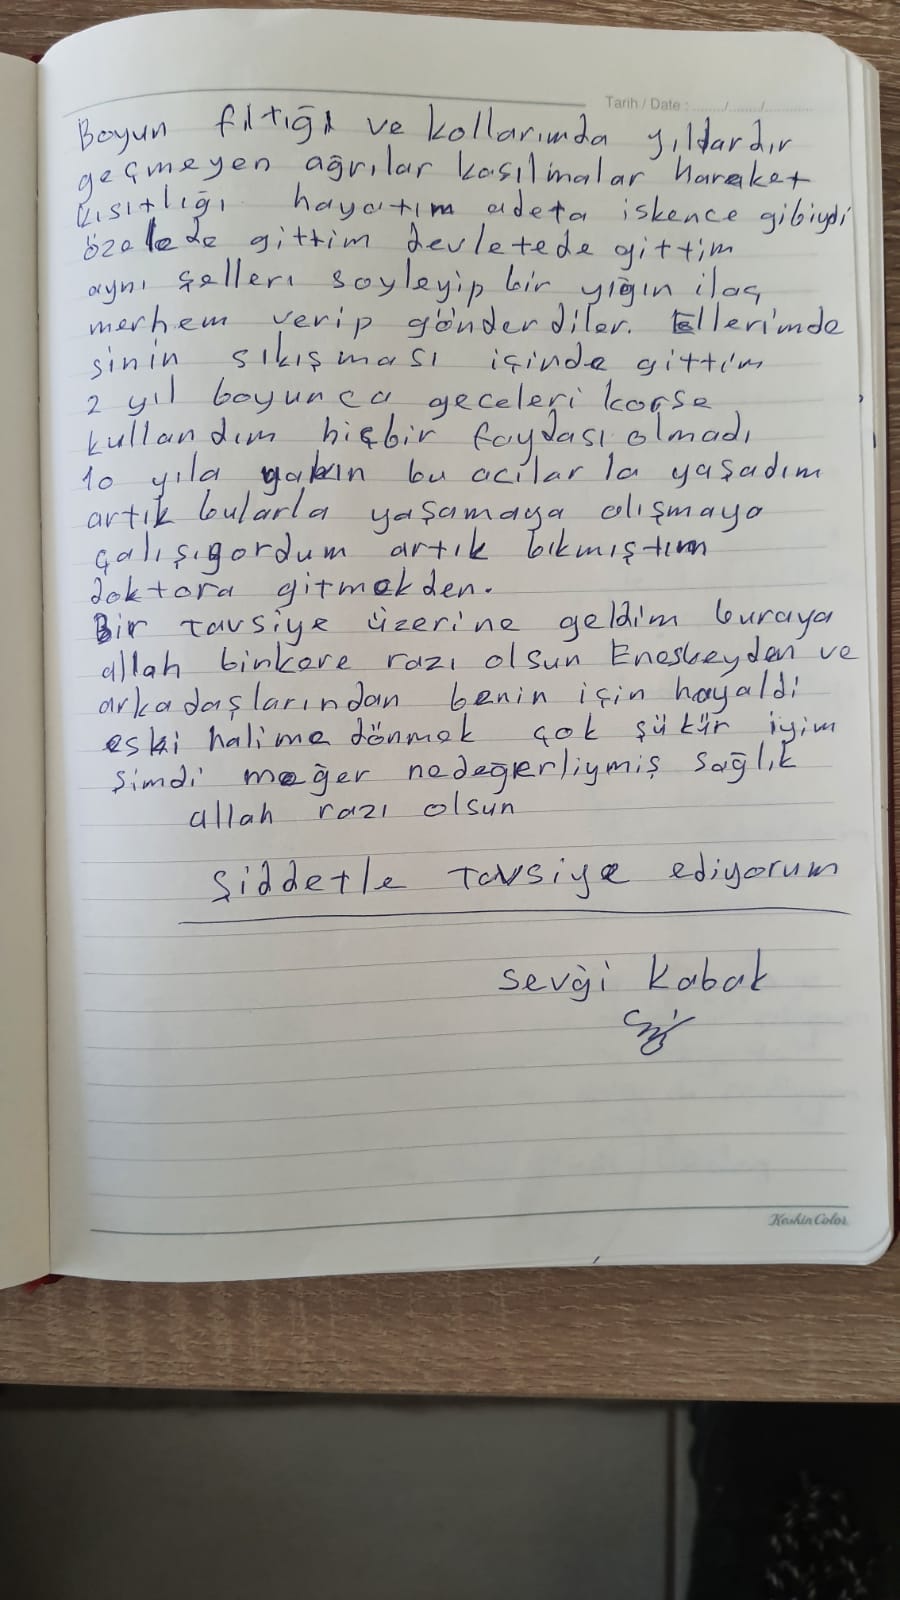 Tarih / Date : ......./......./.............
Boyun fıtığı ve kollarımda yıllardır
geçmeyen ağrılar kasılmalar haraket
kısıtlığı hayatım adeta iskence gibiydi
özelede gittim devletede gittim
aynı şelleri soyleyip bir yığın ilaç
merhem verip gönderdiler. Ellerimde
sinin sıkışması içinde gittim
2 yıl boyunca geceleri korse
kullandım hiçbir faydası olmadı
10 yıla yakın bu acilar la yaşadım
artık bularla yaşamaya alışmaya
çalışıyordum artık bıkmıştım
doktora gitmekden.
Bir tavsiye üzerine geldim buraya
allah binkere razı olsun Enesbeyden ve
arkadaşlarından benin için hayaldi
eski halime dönmek çok şükür iyim
şimdi meğer nedeğerliymiş sağlık
allah razı olsun
Şiddetle tavsiye ediyorum
Sevgi Kabak
Keskin Color